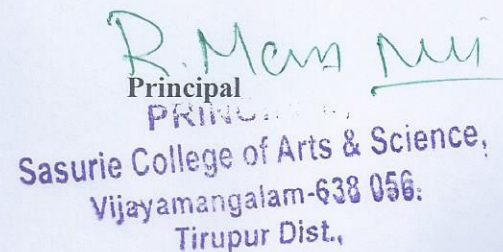 R. M
Principal
PRINCIPAL,
Sasurie College of Arts & Science,
Vijayamangalam-638 056.
Tirupur Dist.,